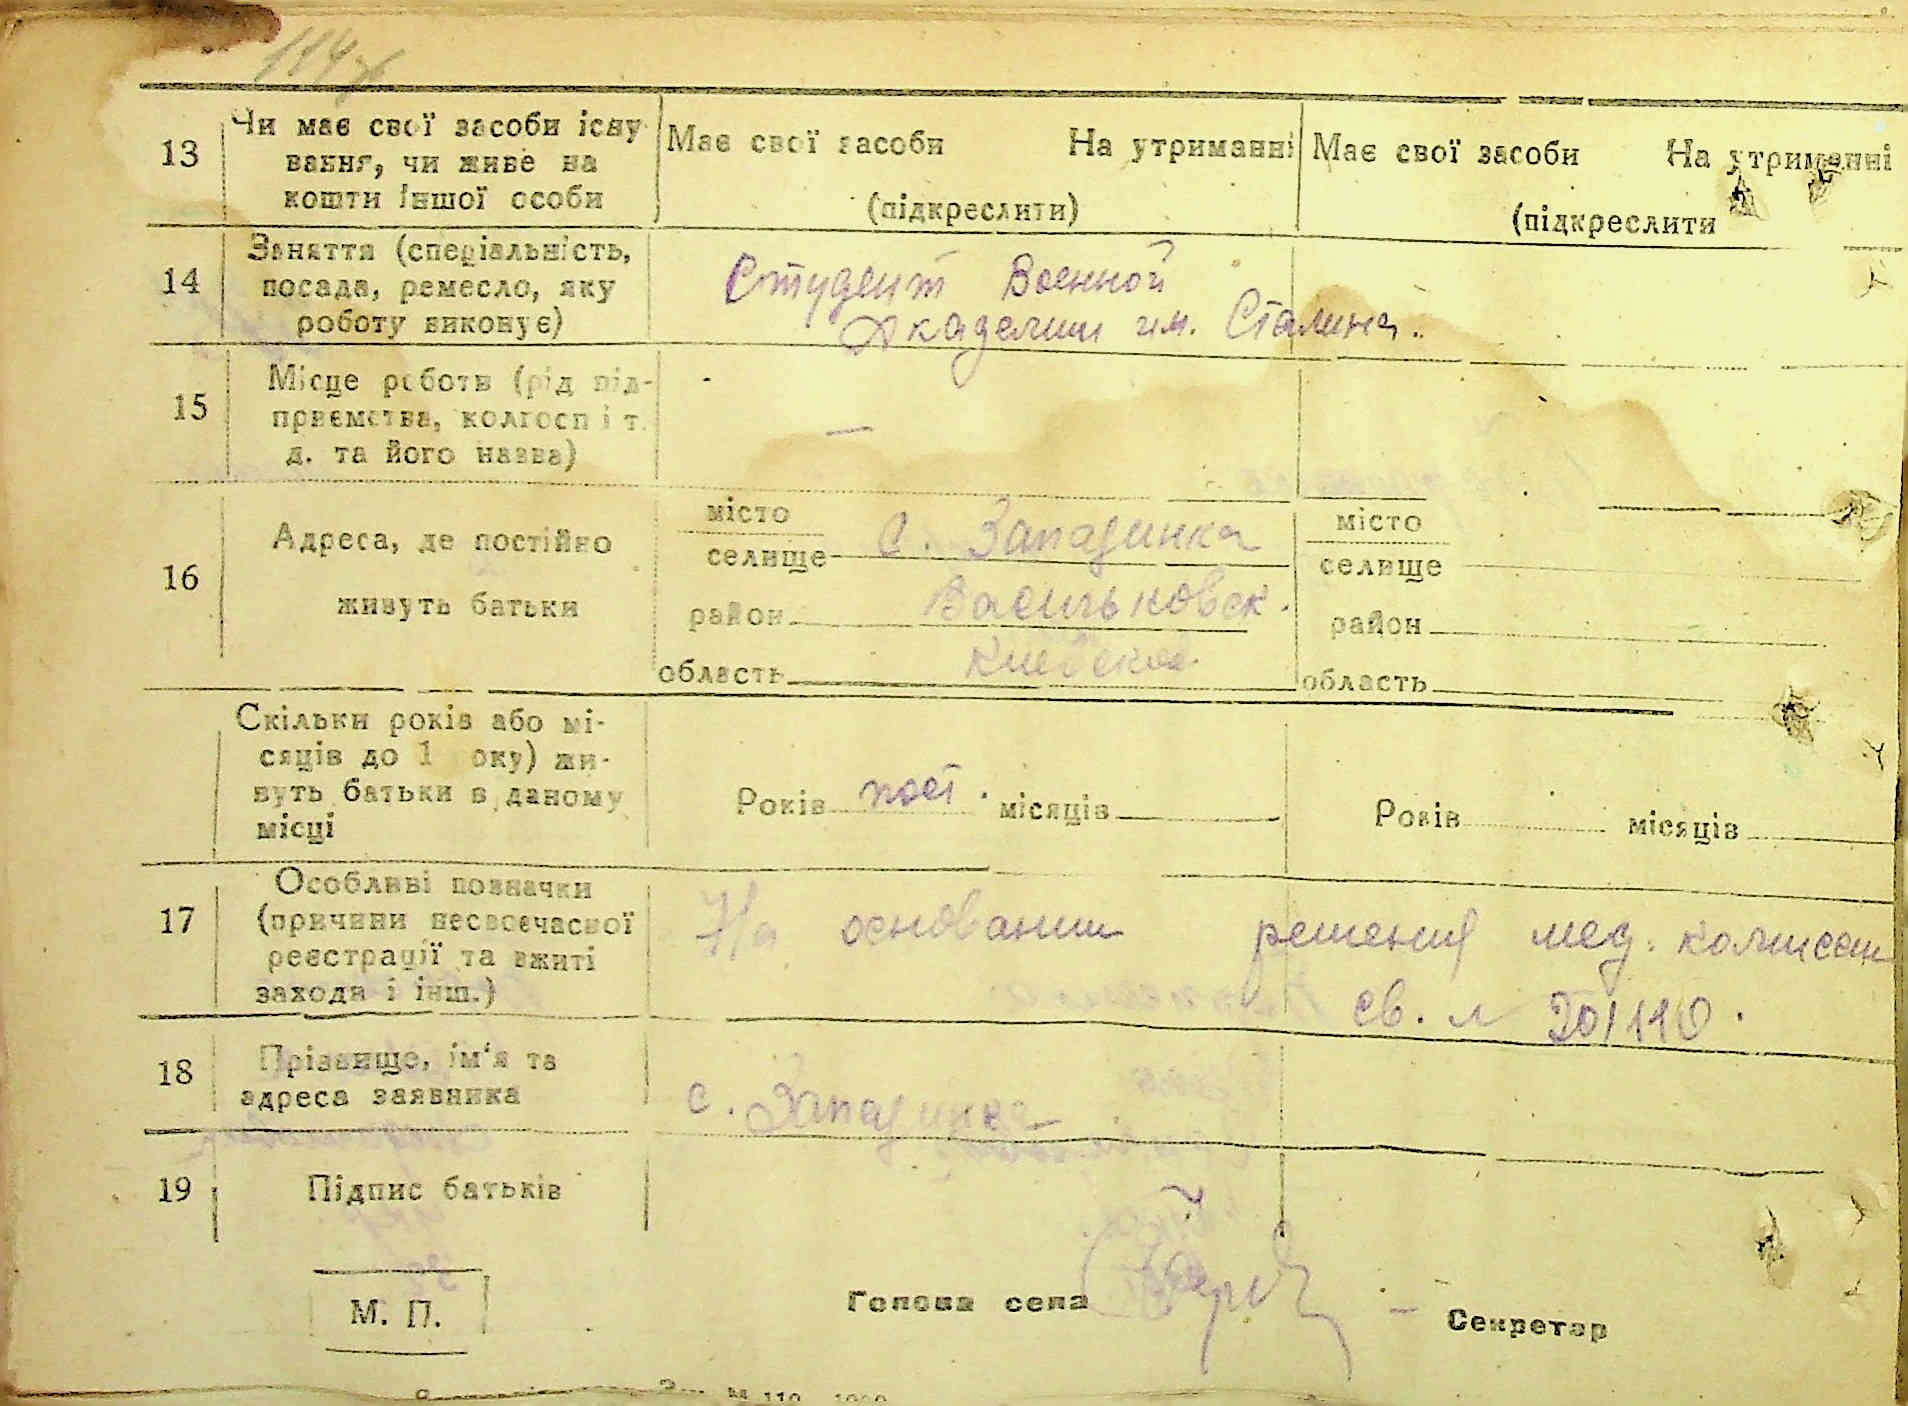 114
13 Чи має свої засоби існу
вання, чи живе на
кошти іншої особи
Має свої засоби На утриманні
(підкреслити)
Має свої засоби На утриманні
(підкреслити
14 Заняття (спеціальність,
посада, ремесло, яку
роботу виконує)
Студент Военной
Академии им. Сталина.
15 Місце роботи (рід під-
приємства, колгосп і т.
д. та його назва)
—
16 Адреса, де постійно
живуть батьки
місто
селище с. Западинка
район Васильковск.
область Киевской
місто
селище
район
область
Скільки років або мі-
сяців до 1 року) жи-
вуть батьки в даному
місці
Років пост. місяців
Років місяців
17 Особливі позначки
(причини несвоєчасної
реєстрації та вжиті
заходи і інш.)
На основании решения мед. комиссии
св. №
18 Прізвище, ім'я та
адреса заявника
с. Западинка
19 Підпис батьків
М. П.
Голова села
Секретар